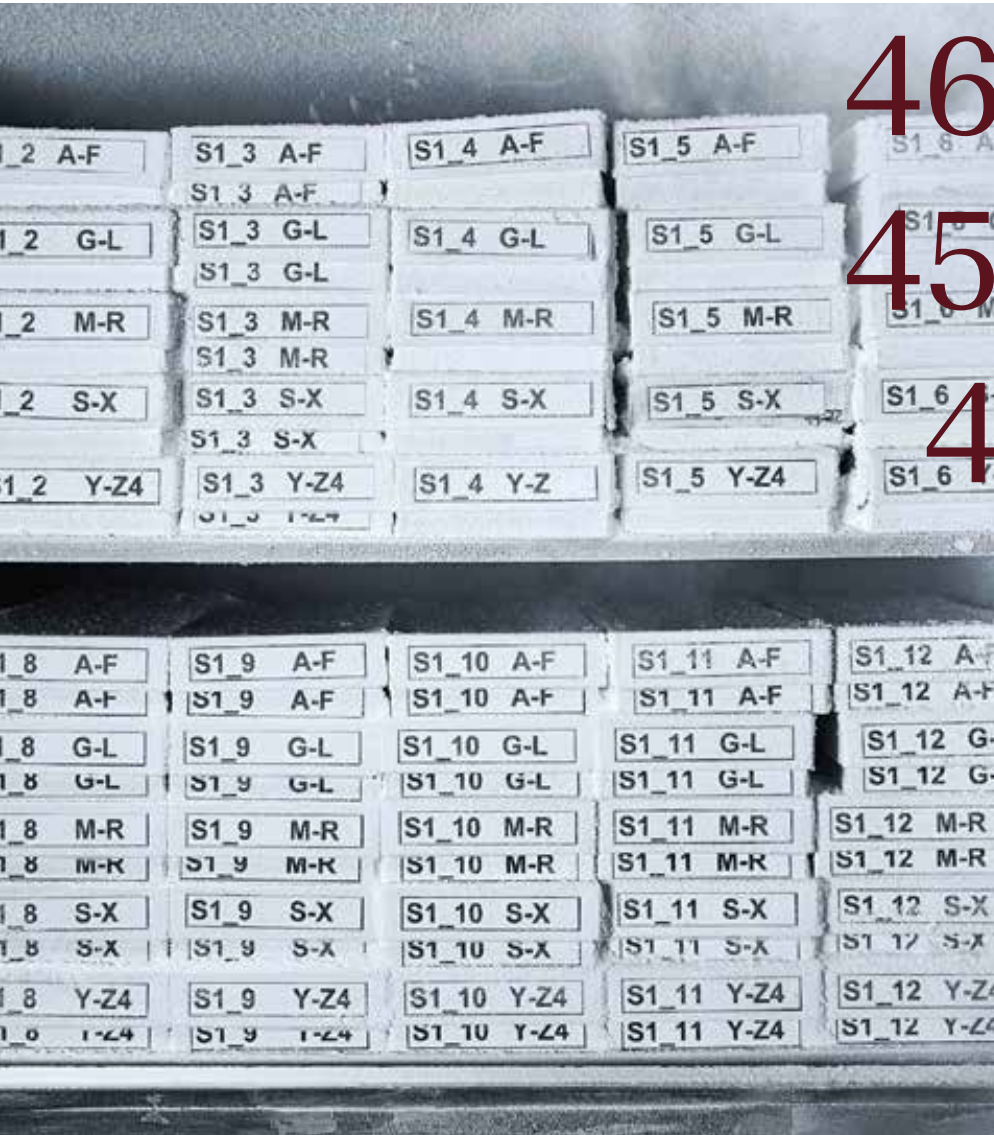 46
_2 A-F
S1_3 A-F
S1_4 A-F
S1_5 A-F
S1_6 A
S1_3 A-F
1_2 G-L
S1_3 G-L
S1_4 G-L
S1_5 G-L
45
S1_3 G-L
_2 M-R
S1_3 M-R
S1_4 M-R
S1_5 M-R
S1_3 M-R
_2 S-X
S1_3 S-X
S1_4 S-X
S1_5 S-X
S1_6
4
S1_3 S-X
S1_2 Y-Z4
S1_3 Y-Z4
S1_4 Y-Z
S1_5 Y-Z4
S1_6 Y
S1_3 Y-Z4
1_8 A-F
S1_9 A-F
S1_10 A-F
S1_11 A-F
S1_12 A-F
1_8 A-F
S1_9 A-F
S1_10 A-F
S1_11 A-F
S1_12 A-F
1_8 G-L
S1_9 G-L
S1_10 G-L
S1_11 G-L
S1_12 G-
1_8 G-L
S1_9 G-L
S1_10 G-L
S1_11 G-L
S1_12 G-
1_8 M-R
S1_9 M-R
S1_10 M-R
S1_11 M-R
S1_12 M-R
1_8 M-R
S1_9 M-R
S1_10 M-R
S1_11 M-R
S1_12 M-R
1_8 S-X
S1_9 S-X
S1_10 S-X
S1_11 S-X
S1_12 S-X
1_8 S-X
S1_9 S-X
S1_10 S-X
S1_11 S-X
S1_12 S-X
1_8 Y-Z4
S1_9 Y-Z4
S1_10 Y-Z4
S1_11 Y-Z4
S1_12 Y-Z4
1_8 Y-Z4
S1_9 Y-Z4
S1_10 Y-Z4
S1_11 Y-Z4
S1_12 Y-Z4